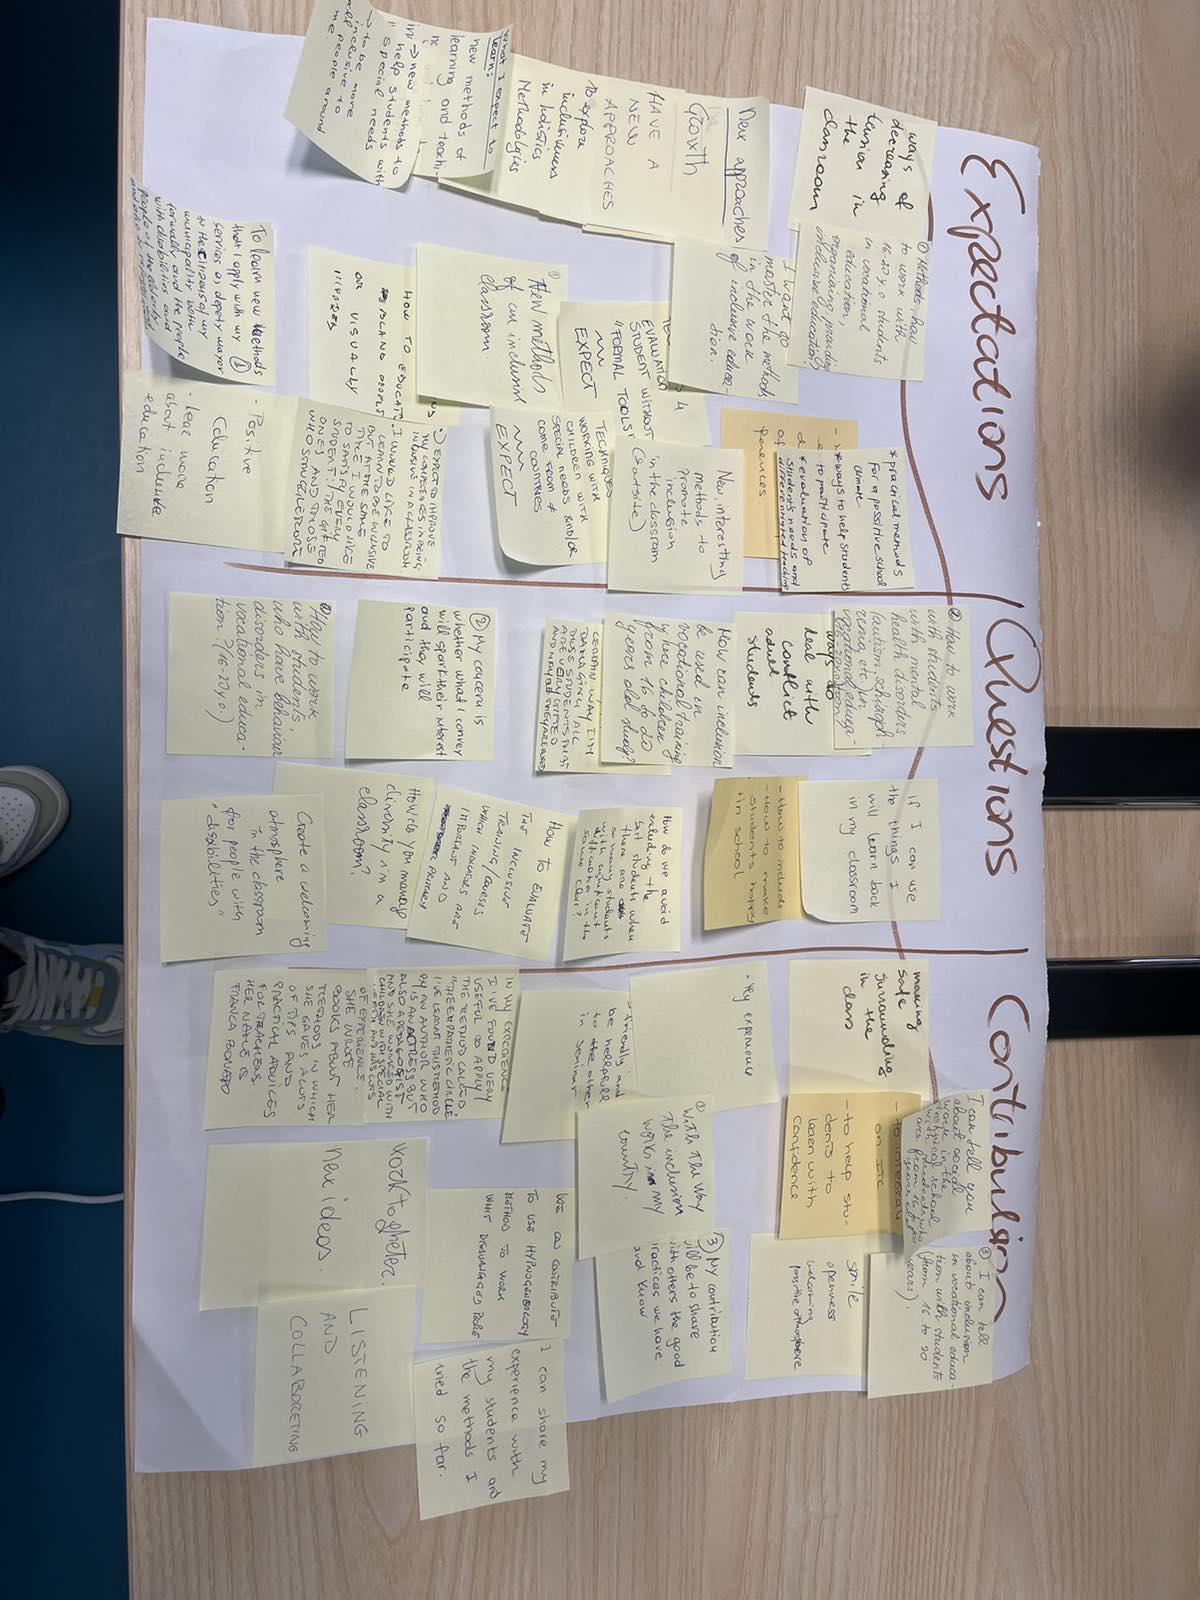 Expectations
ways of
decreasing of
tension in
the
classroom
New approaches
Growth.
HAVE A
NEW
APPROACHES
To explore
inclusiveness
in holistics
Methodologies
What I expect to
learn:
new methods of
learning and teachi-
→ new methods to
help students with
special needs
→ to be more
inclusive to
people around
me
① Methods, how
to work with
16-20 y.o students
in vocational
education,
organizing, providing
inclusive education?
I want to
master the methods
in the work
of inclusive educa-
tion.
EVALUATION
STUDENT WITHOUT
"FORMAL TOOLS"
EXPECT
① New methods
of an inclusive
classroom
HOW TO EDUCATE
PEOPLE
OR VISUALLY
To learn new methods
that I apply with my ①
services as deputy mayor
to the citizens of my
municipality both
formally and the people
with disabilities and
people of the diversity
* practical methods
for a possitive school
climate
* ways to help students
to participate
* evaluation of
students needs and
differentiated teaching
ferences.
New, interesting
methods to
promote
inclusion
in the classroom
(& outside)
TECHNIQUES
WORKING WITH
CHILDREN WITH
SPECIAL NEEDS &/OR
COME FROM ≠
COUNTRIES
EXPECT
I EXPECT TO IMPROVE
MY COMPETENCES IN BEING
INCLUSIVE IN A CLASSROOM.
I WOULD LIKE TO
LEARN TO BE INCLUSIVE
BUT AT THE SAME
TIME I WOULD LIKE
TO SATISFY EVERY
STUDENT: THE GIFTED
ONES AND THOSE
WHO STRUGGLE MORE
- Positive
Education
- Lear more
about inclusive
education
Questions
② How to work
with students
with mental
health disorders
(autism, schizoph-
renia, etc.) in
vocational educa-
ways to
deal with
conflict
adult
students
How can inclusion
be used in
vocational training
where children
from 16 to 20
years old study?
CERTAIN WAY I'M
DAMAGING ALL
THOSE STUDENTS THAT
ARE VERY GIFTED
② My concern is
whether what I convey
will spark their interest
and they will
participate
② How to work
with students,
who have behaviour
disorders in
vocational educa-
tion? (16-20 y.o.)
If I can use
the things I
will learn back
in my classroom
- How to include
- How to make
students happy
in school
How do we avoid
excluding the
best students when
there are
so many students
with significant
difficulties in the
same class?
HOW TO EVALUATE
THE INCLUSIVE
TRAINING/COURSES
WHICH INDICES ARE
IMPORTANT AND
PRIMARY
How do you manage
diversity in a
classroom?
Create a welcoming
atmosphere
in the classroom
for people with
"disabilities"
Contribution
making
safe
surrounding
in the
class
- My experience
friendly and
be helpfull
to the other
in
seminar
IN MY EXPERIENCE
I'VE FOUND VERY
USEFUL TO APPLY
THE METHOD CALLED
"THE EMPATHETIC CIRCLE"
I'VE LEARNT THIS METHOD
BY AN AUTHOR WHO
IS AN ACTRESS BUT
ALSO A PEDAGOGIST
AND SHE WORKED WITH
CHILDREN WITH SPECIAL
NEEDS AND HAS LOTS
OF EXPERIENCE.
SHE WROTE
BOOKS ABOUT HER
METHODS IN WHICH
SHE GAVES A LOTS
OF TIPS AND
PRACTICAL ADVICES
FOR TEACHERS.
HER NAME IS
FRANCA BONATO
I can tell you
about social
work in the
technical school
with students who
are from 16 to 20
years old
- to integrate
on ITC
- to help stu-
dents to
learn with
confidence
① With the way
the inclusion
works in my
country.
WE CAN CONTRIBUTE
TO USE HYPNOGENEALOGY
METHOD TO WORK
WITH DISADVANTAGED PEOPLE
work togheter.
new ideas.
② I can tell
about inclusion
in vocational educa-
tion with students
(from 16 to 20
years).
smile
openness
welcoming
positive atmosphere
③ My contribution
will be to share
with others the good
practices we have
and know
I can share my
experience with
my students and
the methods I
tried so far.
LISTENING
AND
COLLABORETING